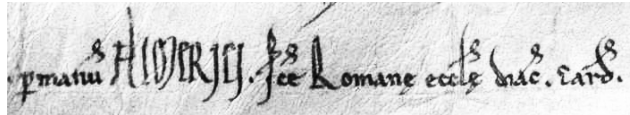 · p manuſ AIMERICI · Sce Romanę ecclę diac · card ·